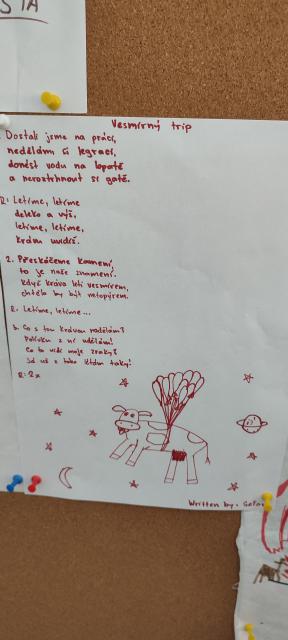 STA
Vesmírný trip
Dostali jsme na práci,
nedělám si legraci,
donést vodu na lopatě
a neroztrhnout si gatě.
R: Letíme, letíme
daleko a výš,
letíme, letíme,
krávu uvidíš.
2. Přeskáčeme kamení,
to je naše znamení.
Když kráva letí vesmírem,
chtěla by být netopýrem.
R. Letíme, letíme...
3. Co s tou krávou naděláme?
Polívku z ní uděláme!
Co to vidí moje zraky?
Já už z toho
R: 2x
Written by: